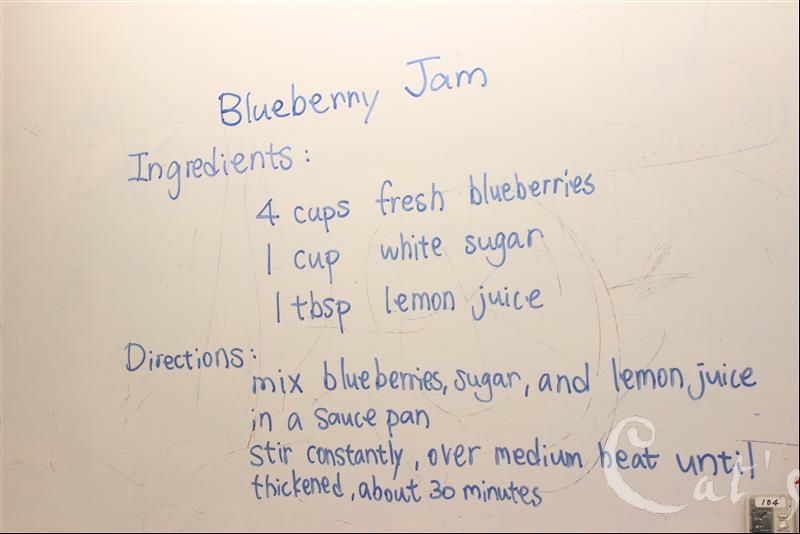 Blueberry Jam
Ingredients:
4 cups fresh blueberries
1 cup white sugar
1 tbsp lemon juice
Directions:
mix blueberries, sugar, and lemon juice
in a sauce pan
stir constantly, over medium heat until
thickened, about 30 minutes
Cat's
104